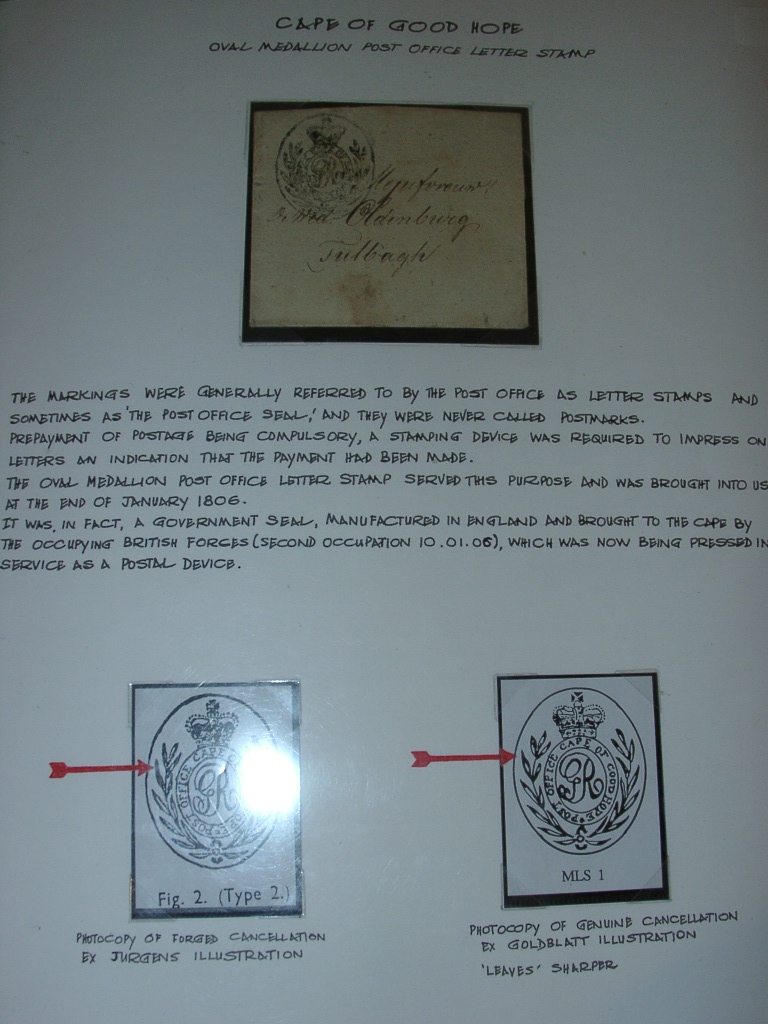 CAPE OF GOOD HOPE
OVAL MEDALLION POST OFFICE LETTER STAMP
GR
Mejufvrouw
Wed. Oldenburg
Tulbagh
THE MARKINGS WERE GENERALLY REFERRED TO BY THE POST OFFICE AS LETTER STAMPS AND
SOMETIMES AS 'THE POST OFFICE SEAL,' AND THEY WERE NEVER CALLED POSTMARKS.
PREPAYMENT OF POSTAGE BEING COMPULSORY, A STAMPING DEVICE WAS REQUIRED TO IMPRESS ON
LETTERS AN INDICATION THAT THE PAYMENT HAD BEEN MADE.
THE OVAL MEDALLION POST OFFICE LETTER STAMP SERVED THIS PURPOSE AND WAS BROUGHT INTO US
AT THE END OF JANUARY 1806.
IT WAS, IN FACT, A GOVERNMENT SEAL, MANUFACTURED IN ENGLAND AND BROUGHT TO THE CAPE BY
THE OCCUPYING BRITISH FORCES (SECOND OCCUPATION 10.01.06), WHICH WAS NOW BEING PRESSED IN
SERVICE AS A POSTAL DEVICE.
POST OFFICE CAPE
GR
Fig. 2. (Type 2.)
PHOTOCOPY OF FORGED CANCELLATION
EX JURGENS ILLUSTRATION
POST OFFICE CAPE OF GOOD HOPE
GR
MLS 1
PHOTOCOPY OF GENUINE CANCELLATION
EX GOLDBLATT ILLUSTRATION
'LEAVES' SHARPER